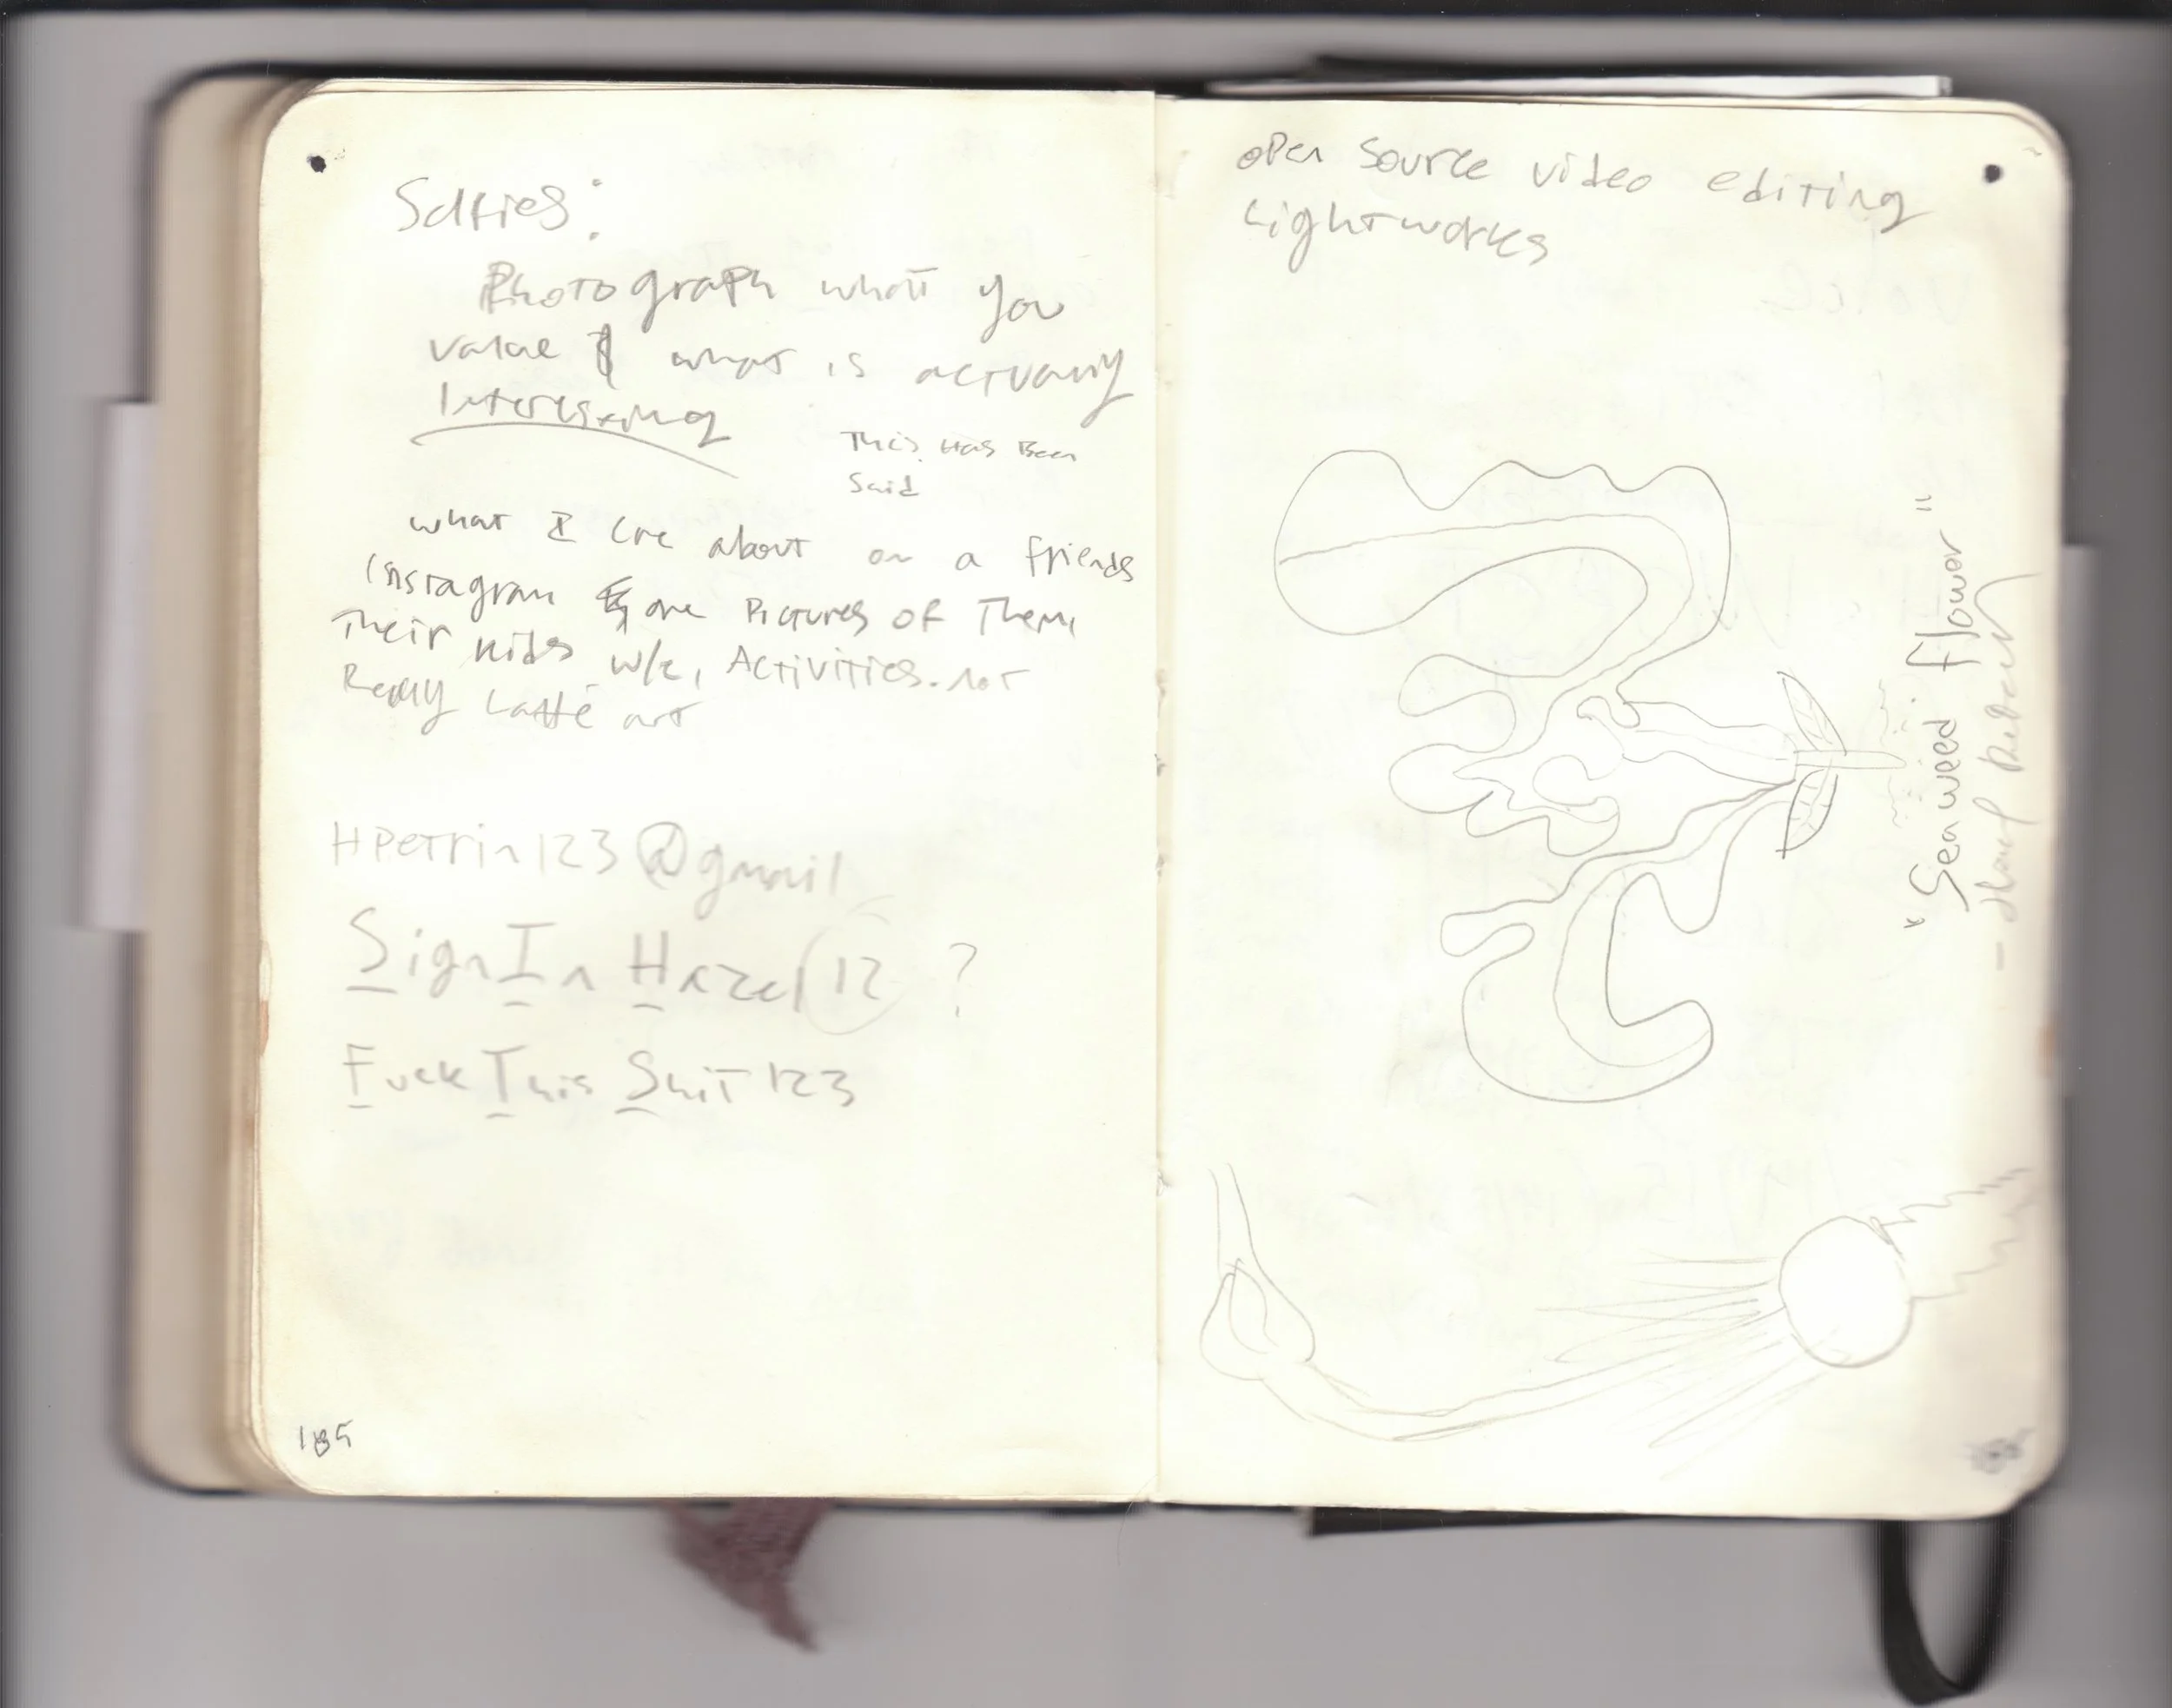 Selfies:
Photograph what you
value & what is actually
Interesting
This Has Been
Said
what I care about on a friends
Instagram are Pictures of Them,
Their kids w/e, Activities. not
Really Latté art
HPetrin123@gmail
SignInHazel12 ?
FuckThisShit123
185
open source video editing
Lightworks
"Seaweed flower"